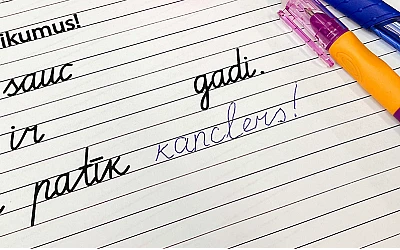 ikumus!
sauc gadi.
ir
patīk kanclers!